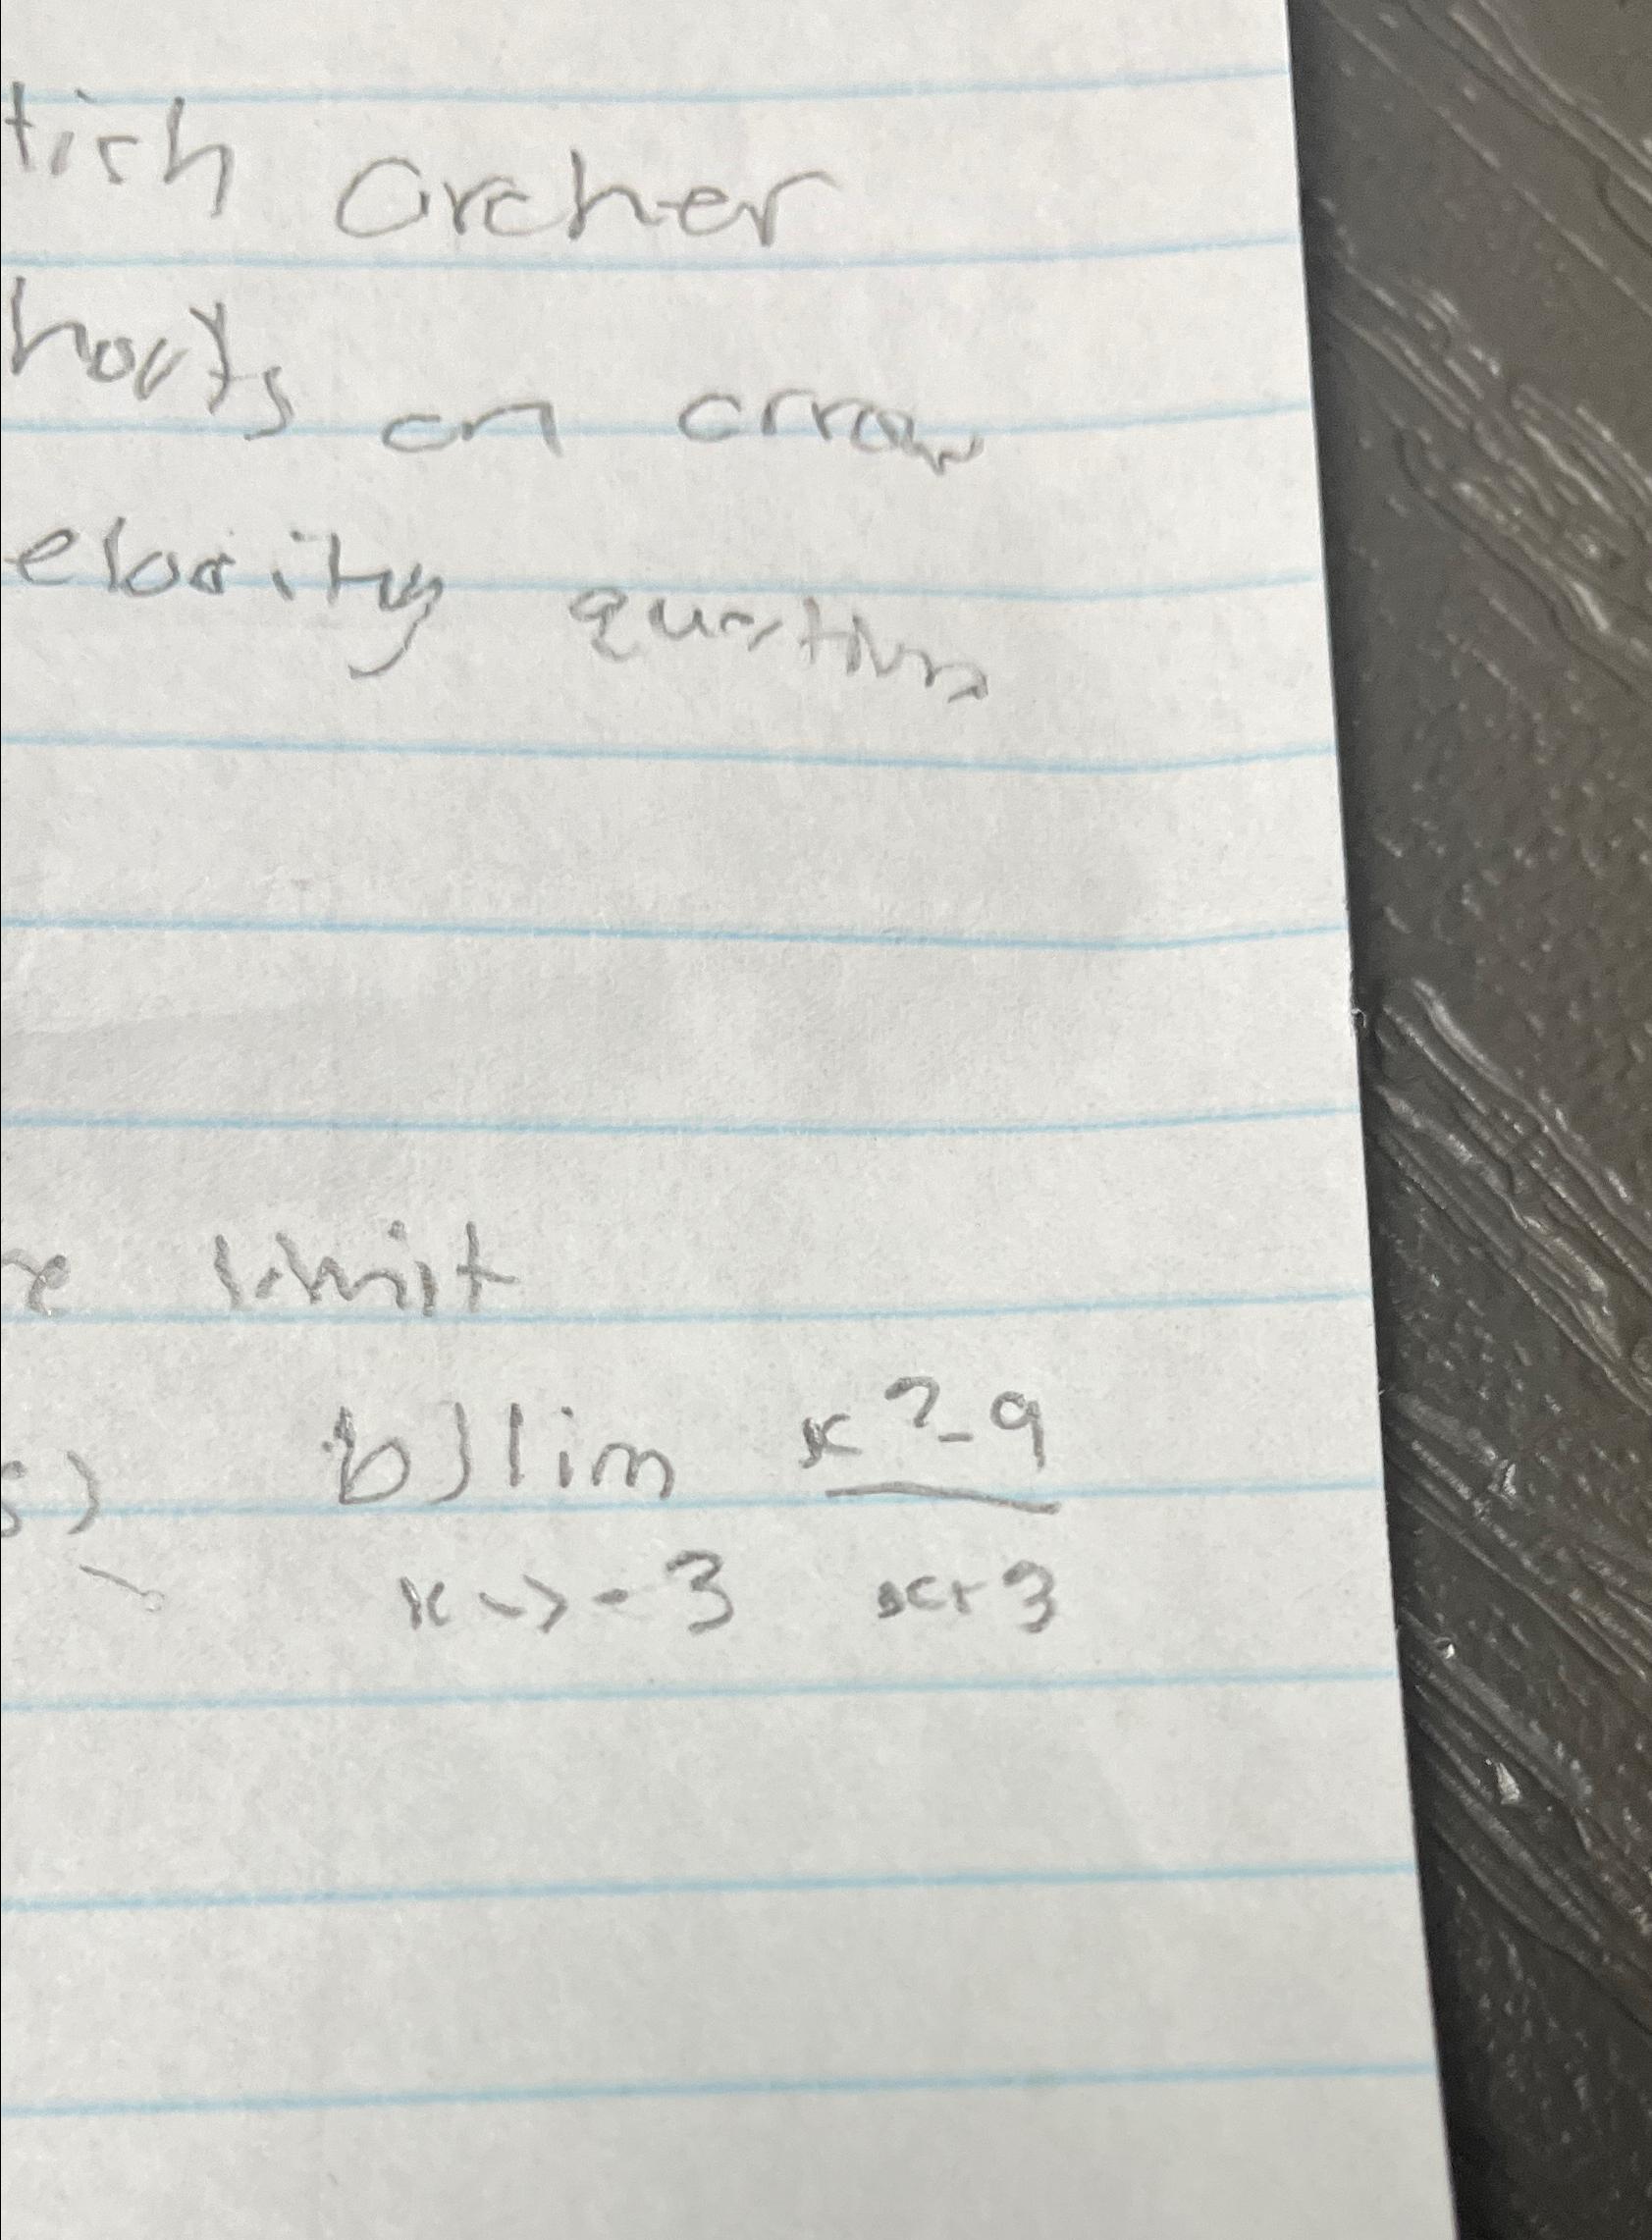 tish archer
hoots an arrow
elocity question
re limit
s) b) lim x²-9
x->-3 x+3